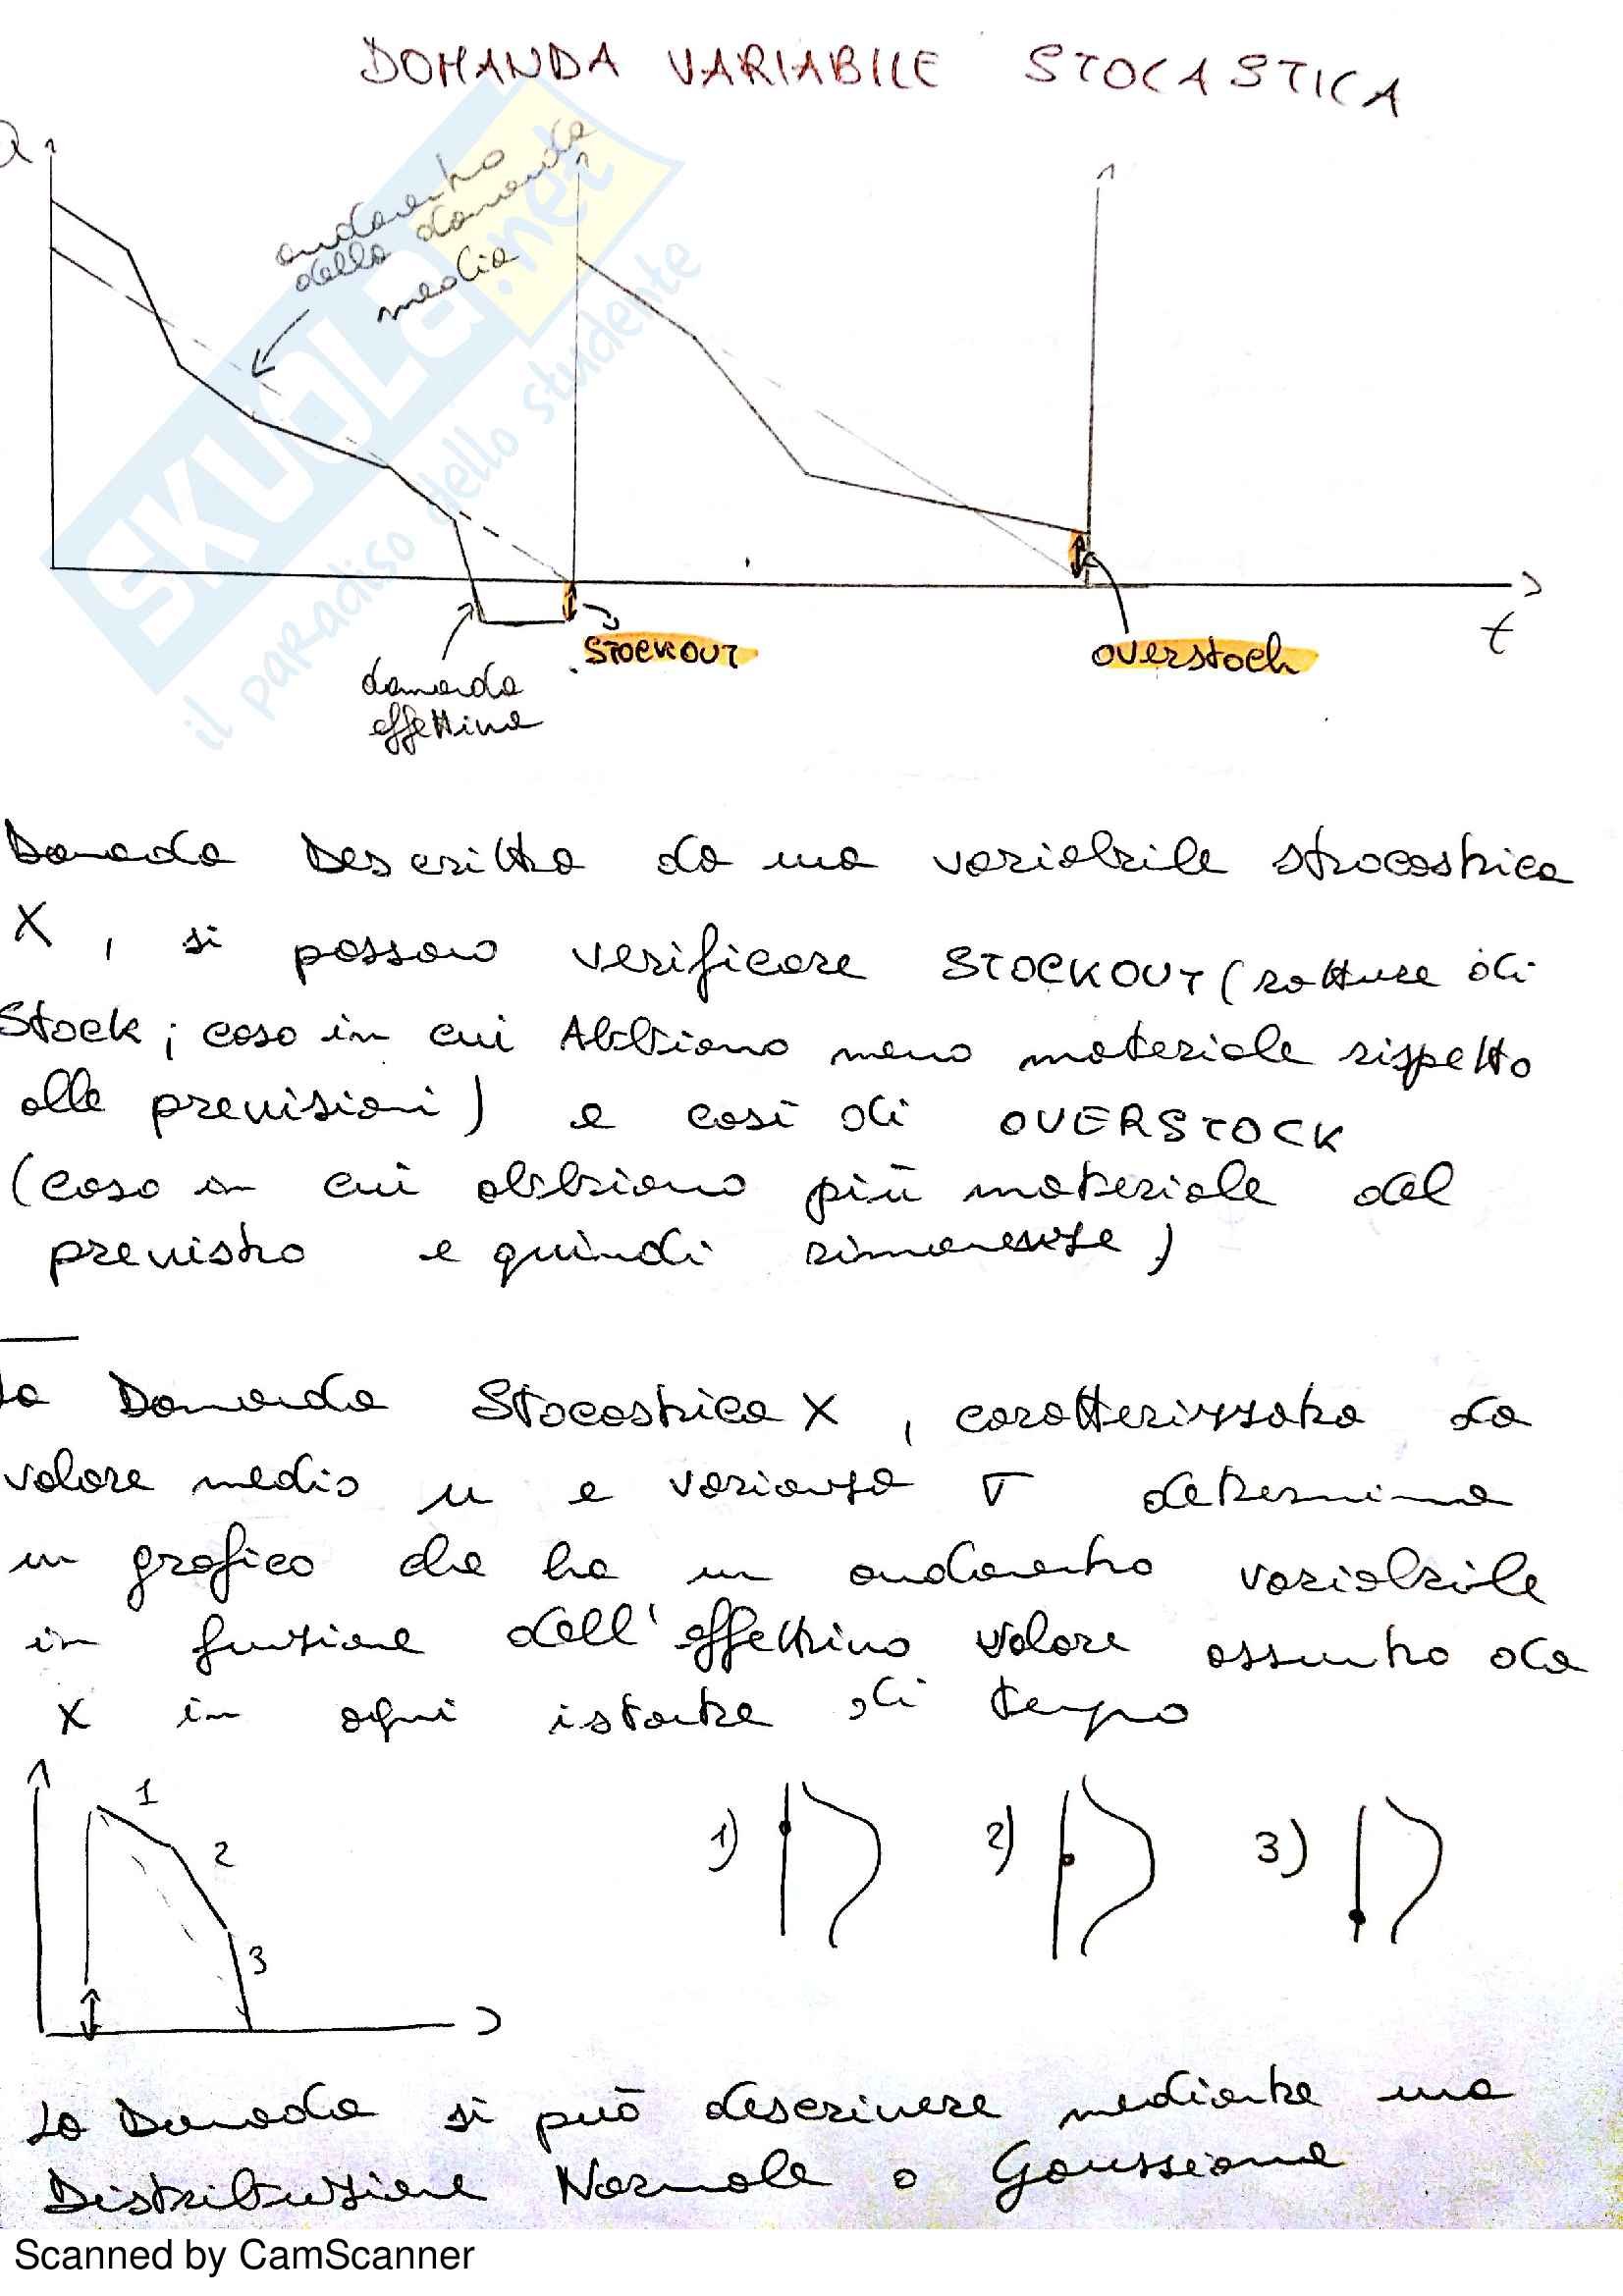 DOMANDA VARIABILE STOCASTICA
Q
andamento
della domanda
media
SKUOLA.net
il paradiso dello studente
STOCKOUT
overstock
t
domanda
effettiva
Domanda Descritta da una variabile stocastica
X, si possono verificare STOCKOUT (rotture di
Stock; caso in cui Abbiamo meno materiale rispetto
alle previsioni) e casi di OVERSTOCK
(caso in cui abbiamo più materiale del
previsto e quindi rimanenze)
la Domanda Stocastica X, caratterizzata da
valore medio μ e varianza σ determina
un grafico che ha un andamento variabile
in funzione dell'effettivo valore assunto da
X in ogni istante di tempo
1
2
3
1)
2)
3)
La Domanda si può descrivere mediante una
Distribuzione Normale o Gaussiana
Scanned by CamScanner